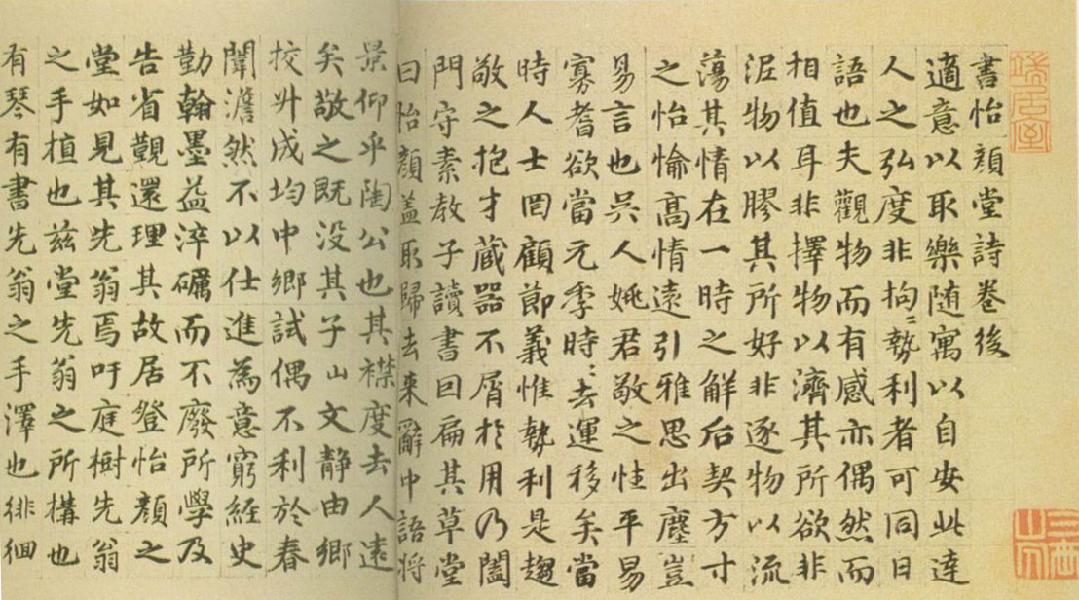 書怡顔堂詩卷後
適意以取樂隨寓以自安此達
人之弘度非拘〻執利者可同日
語也夫觀物而有感亦偶然而
相值耳非擇物以濟其所欲非
泥物以膠其所好非逐物以流
蕩其情在一時之解后契方寸
之怡愉高情遠引雅思出塵豈
易言也吳人姚君敬之性平易
寡耆欲當元季時〻去運移矣當
時人士罔顧節義惟執利是趨
敬之抱才蔵器不屑於用乃闔
門守素敎子讀書回扁其草堂
曰怡顔蓋取歸去來辭中語將
景仰乎陶公也其襟度去人遠
矣敬之既没其子山文靜由鄉
挍升成均中鄉試偶不利於春
闈澹然不以仕進為意窮經史
勤翰墨益淬礪而不廢所學及
告省覲還理其故居登怡顔之
堂如見其先翁焉吁庭樹先翁
之手植也兹堂先翁之所構也
有琴有書先翁之手澤也徘徊